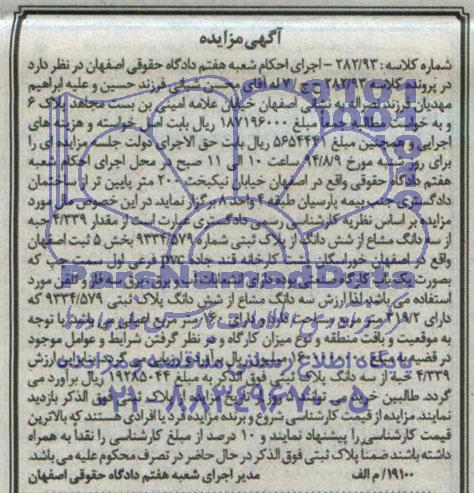 آگهی مزایده
شماره کلاسه: ۲۸۲/۹۳ - اجرای احکام شعبه هفتم دادگاه حقوقی اصفهان در نظر دارد
در پرونده کلاسه ۲۸۲/۹۳ ح ج/ ۷ له آقای محسن فرزند حسین و علیه ابراهیم
مهدیان فرزند نصراله به نشانی اصفهان خیابان علامه امینی بن بست مجاهد پلاک ۶
و به خواسته مطالبه مبلغ ۱۸۷۱۹۶۰۰۰ ریال بابت اصل خواسته و هزینه های
اجرایی و همچنین مبلغ ۵۶۵۴۴۴۱ ریال بابت حق الاجرای دولت جلسه مزایده ای را
برای روز شنبه مورخ ۹۴/۸/۹ ساعت ۱۰ الی ۱۱ صبح در محل اجرای احکام شعبه
هفتم دادگاه حقوقی واقع در اصفهان خیابان نیکبخت ۲۰۰ متر پایین تر از ساختمان
دادگستری جنب بیمه پارسیان طبقه ۴ واحد ۸ برگزار نماید. در این خصوص مال مورد
مزایده بر اساس نظریه کارشناسی رسمی دادگستری عبارت است از مقدار ۴/۳۳۹ حبه
از سه دانگ مشاع از شش دانگ از پلاک ثبتی شماره ۹۳۳۴/۵۷۹ بخش ۵ ثبت اصفهان
واقع در اصفهان خوراسگان کارخانه قند جاده pvc فرعی اول سمت چپ که
بصورت یک باب کارگاه صنعتی بوده دارای انشعابات آب و برق، برق سه فاز و تلفن مورد
استفاده می باشد لذا ارزش سه دانگ مشاع از شش دانگ پلاک ثبتی ۹۳۳۴/۵۷۹ که
دارای ۳۱۹/۲ متر مربع مساحت دارد و دارای ۱۶۰ متر مربع اعیانی می باشد با توجه
به موقعیت و بافت منطقه و نوع میزان کارگاه و در نظر گرفتن شرایط و عوامل موجود
در قضیه به مبلغ میلیون ریال برآورد و ارزیابی می گردد بنابراین ارزش
۴/۳۳۹ حبه از سه دانگ پلاک ثبتی فوق الذکر به مبلغ ۱۹۲۸۵۰۰۴۴ ریال برآورد می
گردد. طالبین خرید می توانند ۵ روز قبل از تاریخ مزایده از پلاک ثبتی فوق الذکر بازدید
نمایند. مزایده از قیمت کارشناسی شروع و برنده مزایده فرد یا افرادی هستند که بالاترین
قیمت کارشناسی را پیشنهاد نمایند و ۱۰ درصد از مبلغ کارشناسی را نقدا به همراه
داشته باشند ضمنا پلاک ثبتی فوق الذکر در حال حاضر در تصرف محکوم علیه می باشد.
۱۹۱۰۰/ م الف مدیر اجرای شعبه هفتم دادگاه حقوقی اصفهان
ParsNamadData
پایگاه اطلاع رسانی مناقصه و مزایده
۰۲۱-۸۸۳۴۹۶۷۰-۵